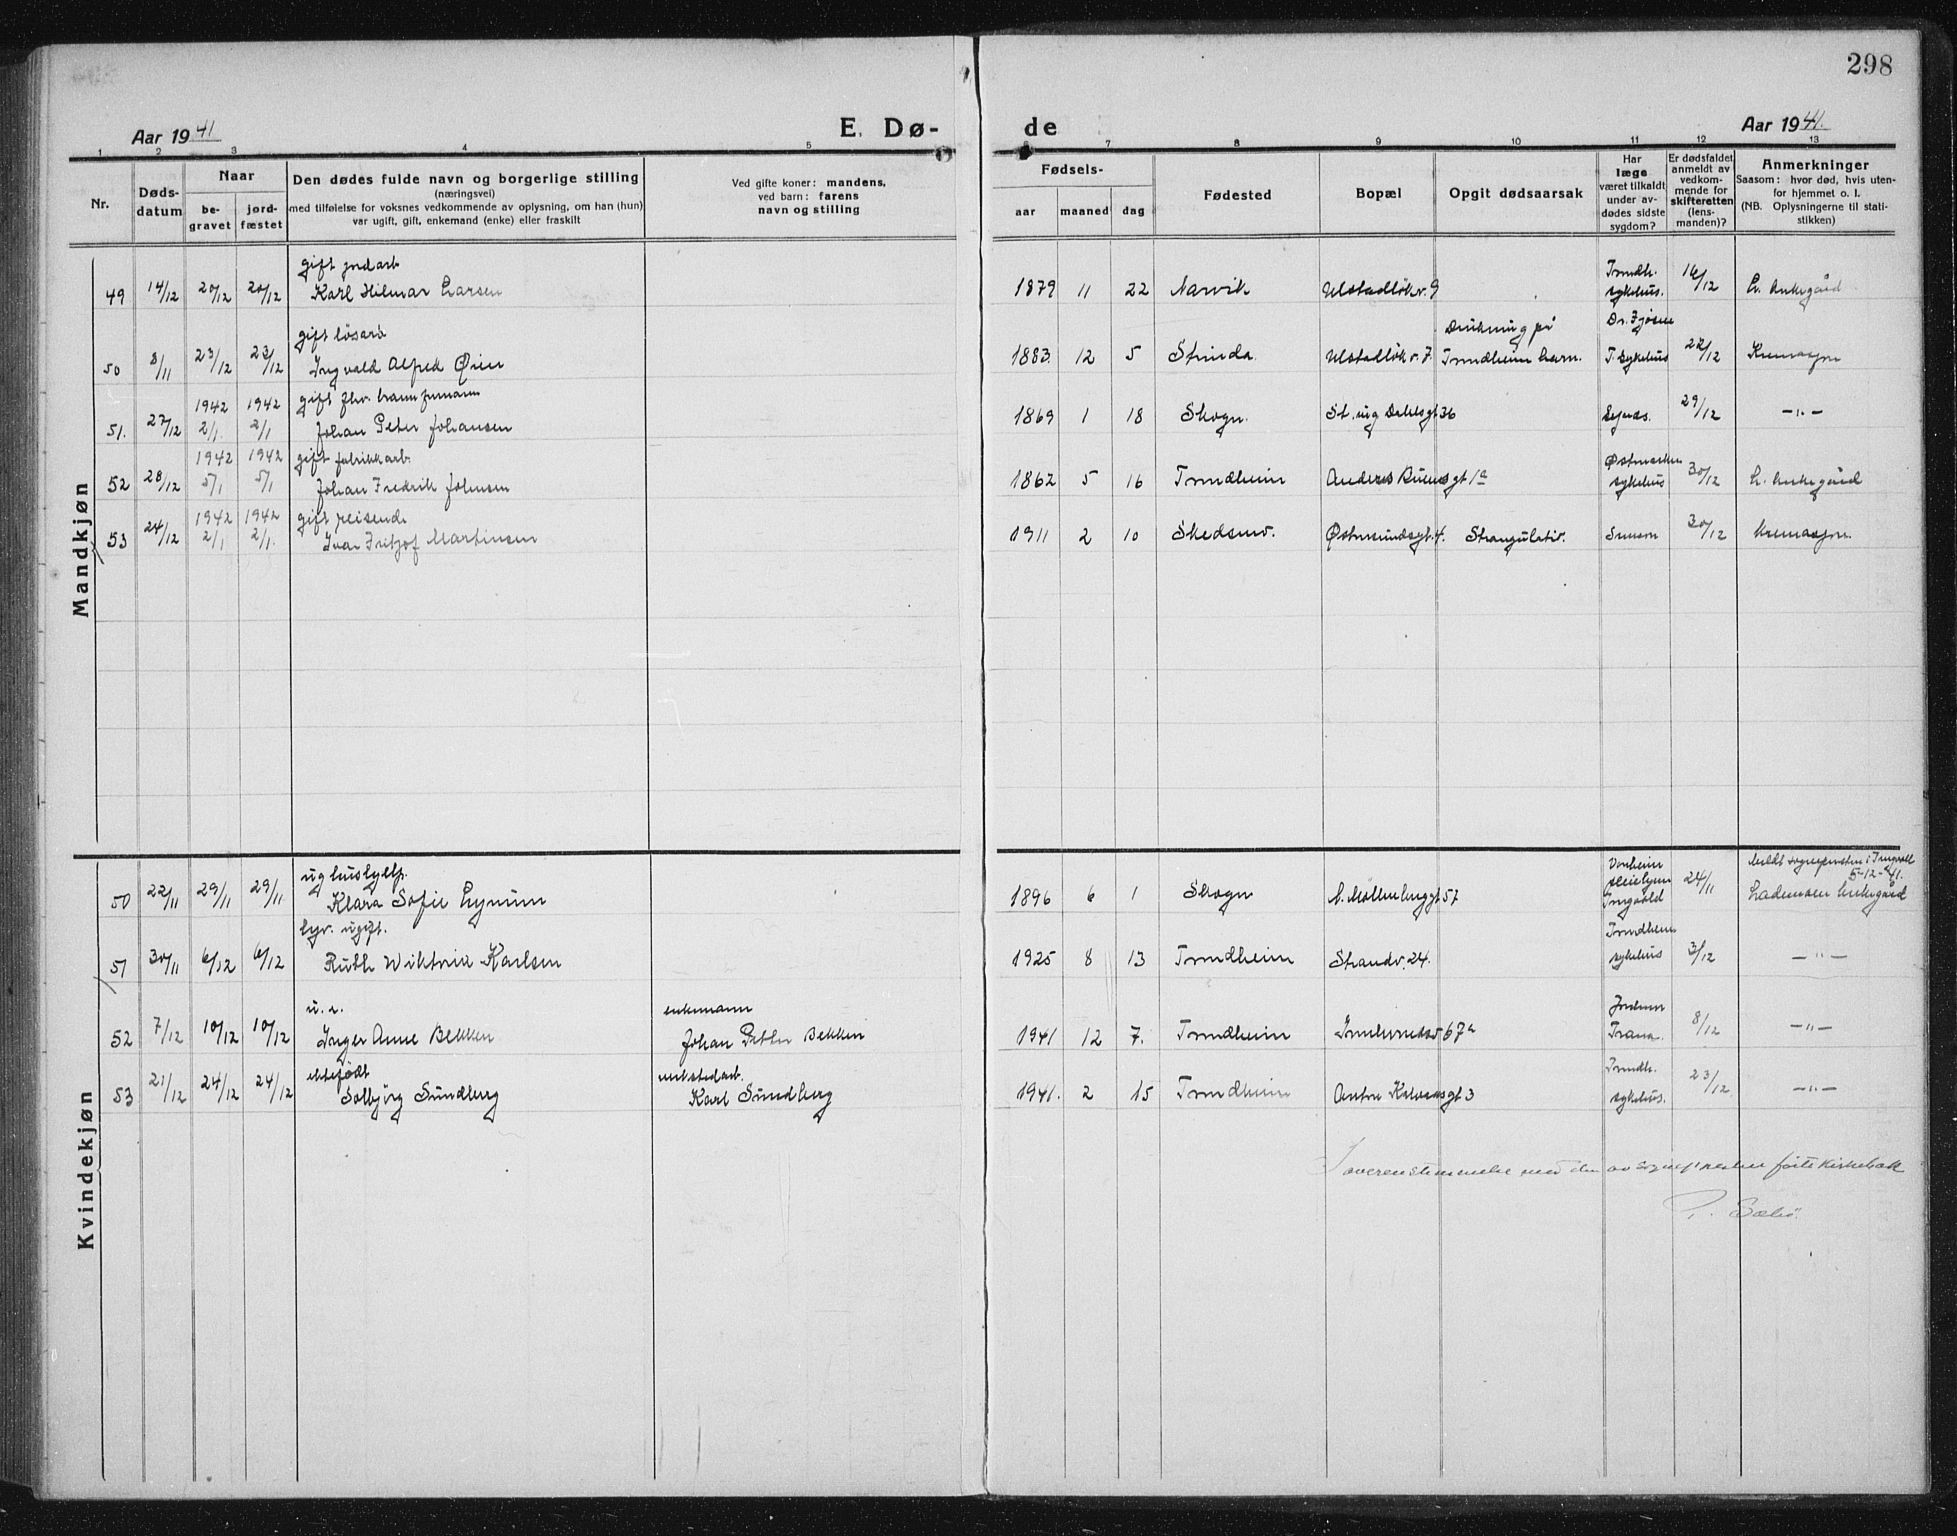 298
Aar 1941
E. Dø-
de
Aar 1941.
1 2 3 4 5 6 7 8 9 10 11 12 13
Nr.
Døds-
datum
Naar
be-
gravet
jord-
fæstet
Den dødes fulde navn og borgerlige stilling
(næringsvei)
med tilføielse for voksnes vedkommende av oplysning, om han (hun)
var ugift, gift, enkemand (enke) eller fraskilt
Ved gifte koner: mandens,
ved barn: farens
navn og stilling
Fødsels-
aar maaned dag
Fødested
Bopæl
Opgit dødsaarsak
Har
læge
været tilkaldt
under av-
dødes sidste
sygdom?
Er dødsfaldet
anmeldt av
vedkom-
mende for
skifteretten
(lens-
manden)?
Anmerkninger
Saasom: hvor død, hvis uten-
for hjemmet o. l.
(NB. Oplysningerne til stati-
stikken)
Mandkjøn
gift jordarb
49 14/12 20/12 20/12 Karl Hilmar Larsen 1879 11 22 Narvik Ulstadløkv. 9 Trondh. sykehus. 16/12 L. kirkegård
gift løsarb
50 8/11 23/12 23/12 Ingvald Alfred Øien 1883 12 5 Strinda Ulstadløkv. 7. Drukning på Trondheim havn. T. sykehus 22/12 Kremasjon
gift fhv.
51. 27/12 1942 2/1. 1942 2/1 Johan Peter Johansen 1869 1 18 Skogn. 36 29/12 —"—
gift fabrikkarb.
52 28/12 1942 5/1 1942 5/1 Johan Fredrik Johnsen 1862 5 16 Trondheim Anders Buens gt 1a Østmarken sykehus 30/12 L. kirkegård
gift reisende
53 24/12 1942 2/1 1942 2/1. Ivar Fritjof Martinsen 1911 2 10 Skedsmo. Østersundsgt. 4. Strangulatio. 30/12 kremasjon.
Kvindekjøn
ug hushjelp.
50 22/11 29/11 29/11 Klara Sofie Lynum 1896 6 1 Skogn N. Møllenberggt 57 24/11 Meldt sognepresten i 5-12-41. Lademoen kirkegård
ugift.
51 30/11 6/12 6/12 Ruth Wiktoria Karlsen 1925 8 13 Trondheim Strandv. 24. Trondheim sykehus 3/12 —"—
u. e.
52 7/12 10/12 10/12 Inger Anne Bekken enkemann Johan Petter Bekken 1941 12 7. Trondheim Innherredsv 67a 8/12 —"—
ektefødt
53 21/12 24/12 24/12 Solbjørg Sundberg verkstedarb. Karl Sundberg 1941. 2 15 Trondheim Anton Kalvaas gt 3 Trondh. sykehus. 23/12 —"—
I overenstemmelse med den av sognepresten førte kirkebok
P. Sæbø.